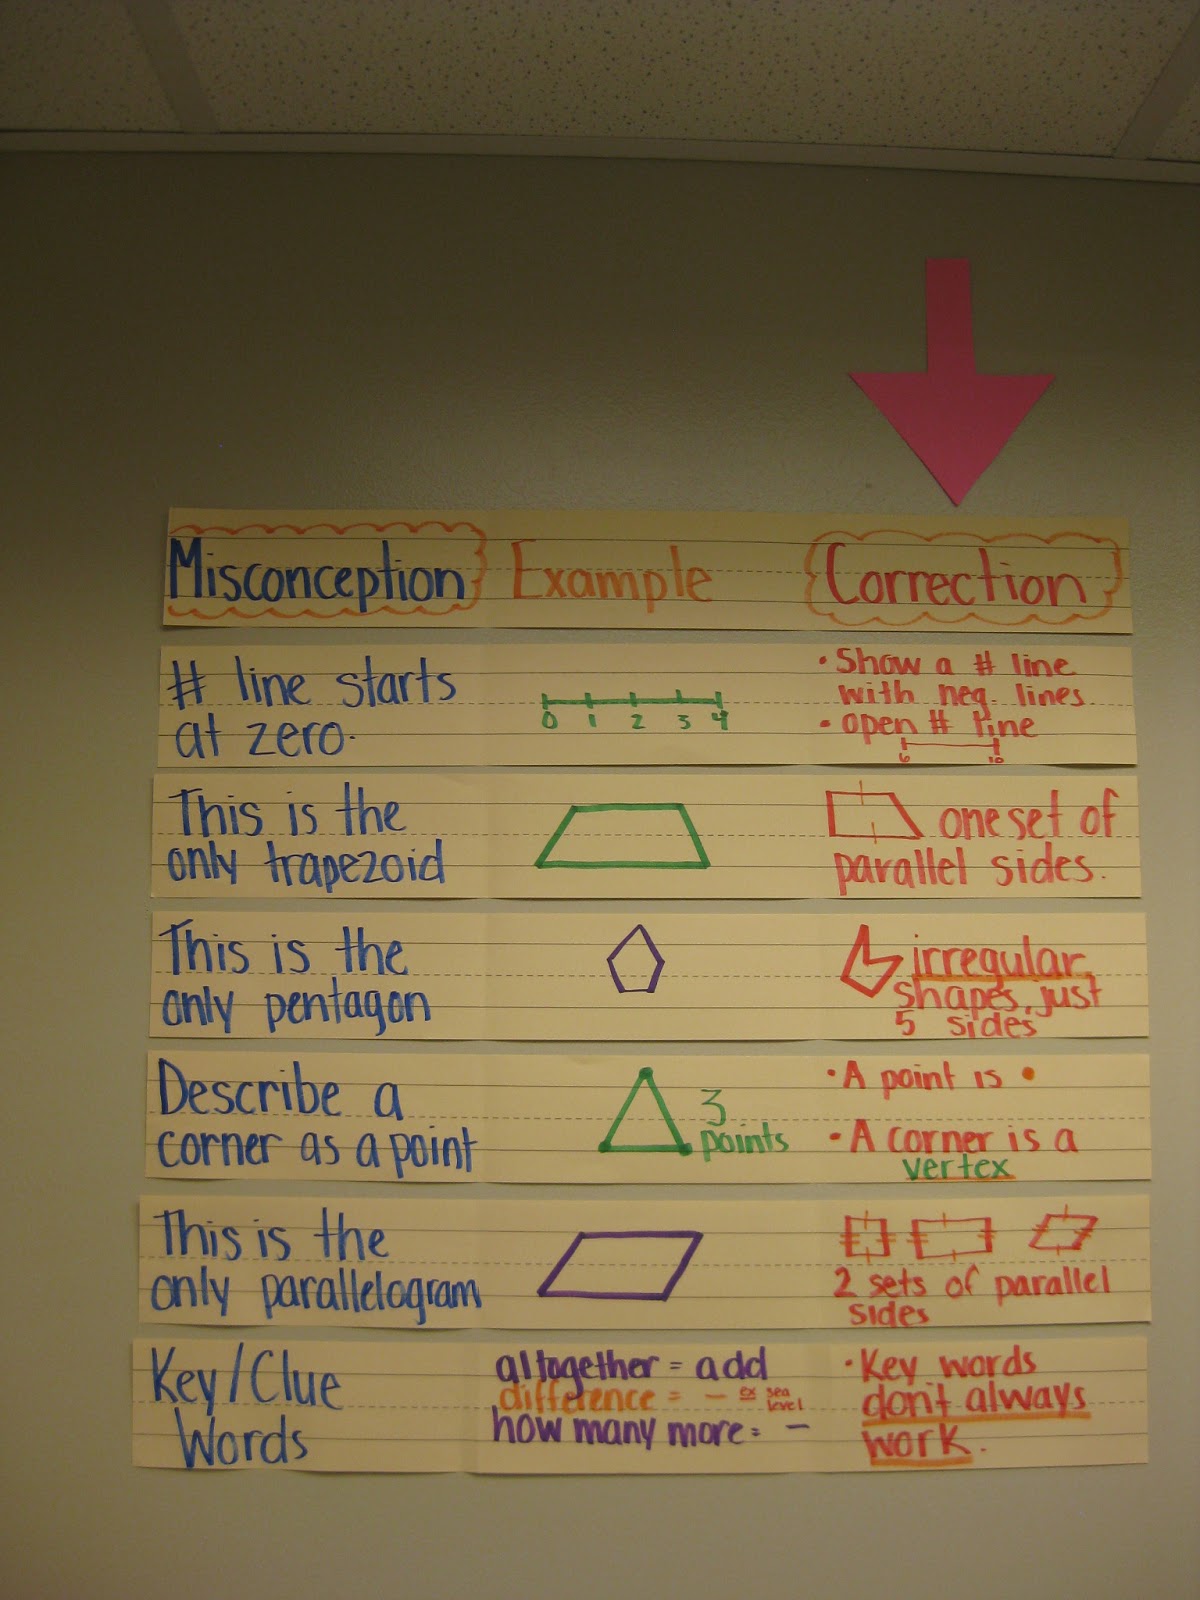 Misconception Example Correction
# line starts
at zero.
0 1 2 3 4
• Show a # line
with neg. lines.
• open # line
6 10
This is the
only trapezoid
one set of
parallel sides.
This is the
only pentagon
irregular
shapes, just
5 sides
Describe a
corner as a point
3
points
• A point is •
• A corner is a
vertex
This is the
only parallelogram
2 sets of parallel
sides
Key/Clue
Words
altogether = add
difference = - ex sea
level
how many more = -
• Key words
don't always
work.